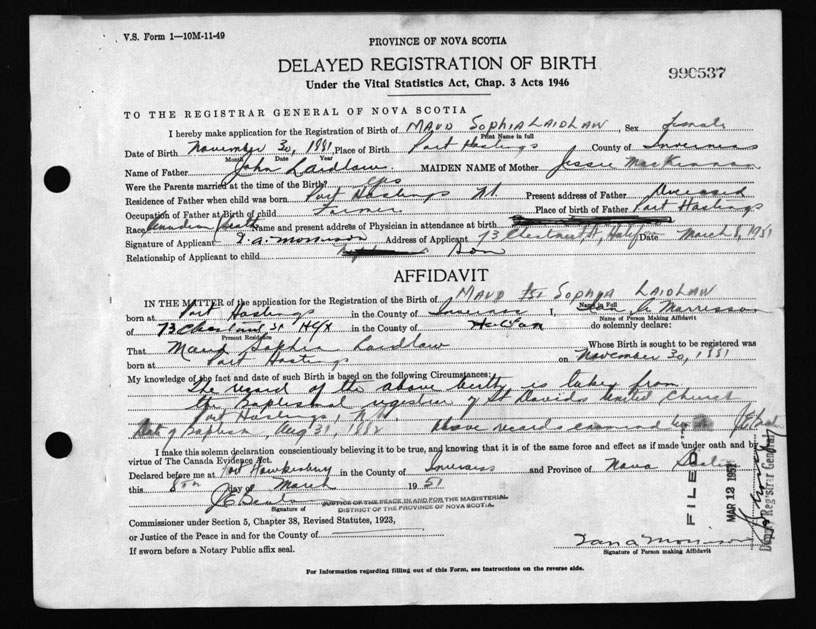 V.S. Form 1—10M-11-49
PROVINCE OF NOVA SCOTIA
DELAYED REGISTRATION OF BIRTH
990537
Under the Vital Statistics Act, Chap. 3 Acts 1946
TO THE REGISTRAR GENERAL OF NOVA SCOTIA
I hereby make application for the Registration of Birth of MAUD SOPHIA LAIDLAW, Sex Female
Print Name in full
Date of Birth November 30, 1881, Place of Birth Port Hastings County of Inverness
Month Date Year
Name of Father John Laidlaw MAIDEN NAME of Mother Jessie MacKinnon
Were the Parents married at the time of the Birth? Yes
Residence of Father when child was born. Port Hastings N.S. Present address of Father Deceased
Occupation of Father at Birth of child Farmer Place of birth of Father Port Hastings
Race Name and present address of Physician in attendance at birth
Signature of Applicant I. A. Morrison Address of Applicant 73 Chestnut St, Halifax Date March 8, 1951
Relationship of Applicant to child Son
AFFIDAVIT
IN THE MATTER of the application for the Registration of Birth of MAUD SOPHIA LAIDLAW
Name in Full
born at Port Hastings in the County of Inverness I, Ian A Morrison
Name of Person Making Affidavit
of 73 Chestnut St Hfx in the County of Halifax do solemnly declare:
Present Residence
That Maud Sophia Laidlaw Whose Birth is sought to be registered was
born at Port Hastings on November 30, 1881
My knowledge of the fact and date of such Birth is based on the following Circumstances:
The record of the above birth is taken from
the Baptismal register of St Davids United Church
Port Hastings, N.S.
Date of Baptism, Aug 31, 1882 Above records examined by
I make this solemn declaration conscientiously believing it to be true, and knowing that it is of the same force and effect as if made under oath and by
virtue of The Canada Evidence Act.
Declared before me at Port Hawkesbury in the County of Inverness and Province of Nova Scotia
this 8th day of March 1951
Signature of
JUSTICE OF THE PEACE IN AND FOR THE MAGISTERIAL
DISTRICT OF THE PROVINCE OF NOVA SCOTIA.
Commissioner under Section 5, Chapter 38, Revised Statutes, 1923,
or Justice of the Peace in and for the County of
If sworn before a Notary Public affix seal.
Ian A Morrison
Signature of Person making Affidavit
FILED
MAR 12 1951
Deputy Registrar General
For Information regarding filling out of this Form, see instructions on the reverse side.